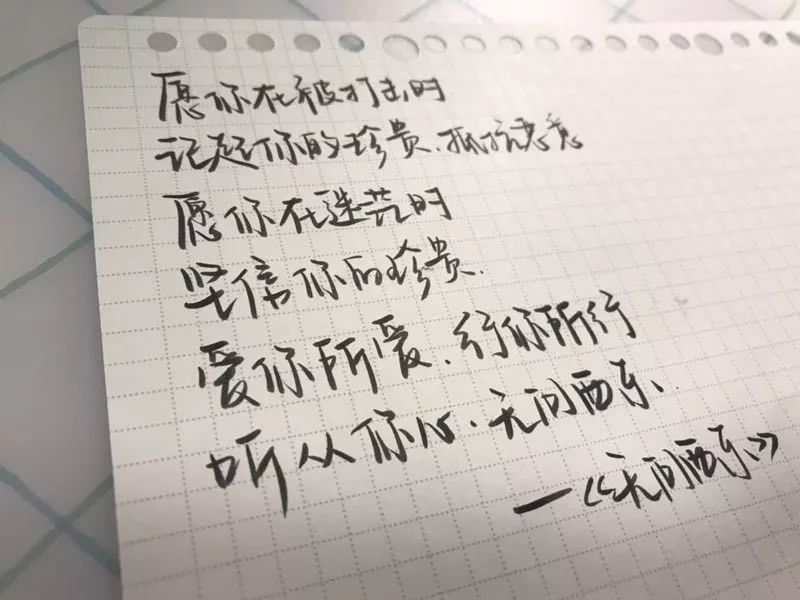 愿你在被打击时
记起你的珍贵、抵抗恶意
愿你在迷茫时
坚信你的珍贵.
爱你所爱、行你所行
听从你心、无问西东、
—《无问西东》